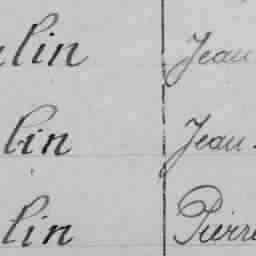 lin Jean
lin Jean
lin Pierre